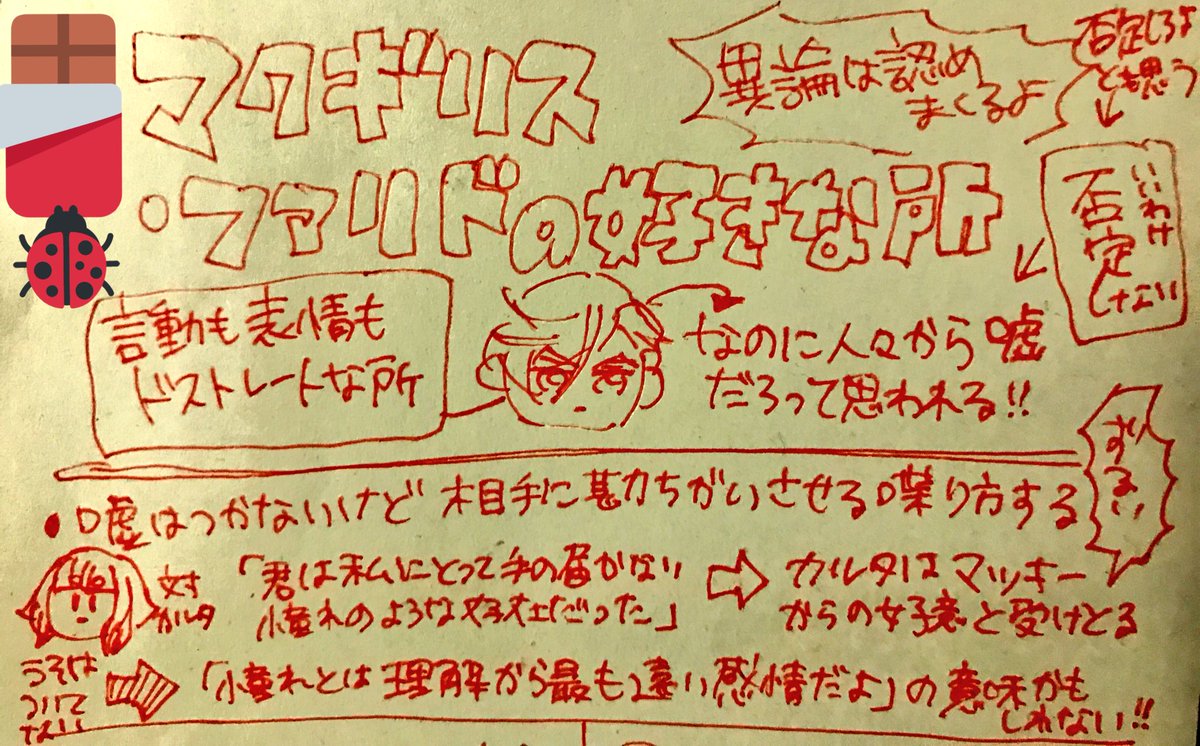 マクギリス
・ファリドの好きな所
異論は認め
まくるよ
否定しろよ
とも思う
いいわけ
否定しない
言動も表情も
ドストレートな所
なのに人々から嘘
だろって思われる!!
ずるい
・嘘はつかないけど相手に甚力ちがいさせる喋り方する
対
カルタ
「君は私にとって手の届かない
憧れのような存在だった」
カルタはマッキー
からの好意と受けとる
うそは
ついて
ない
「憧れとは理解から最も遠い感情だよ」の意味かも
しれない!!